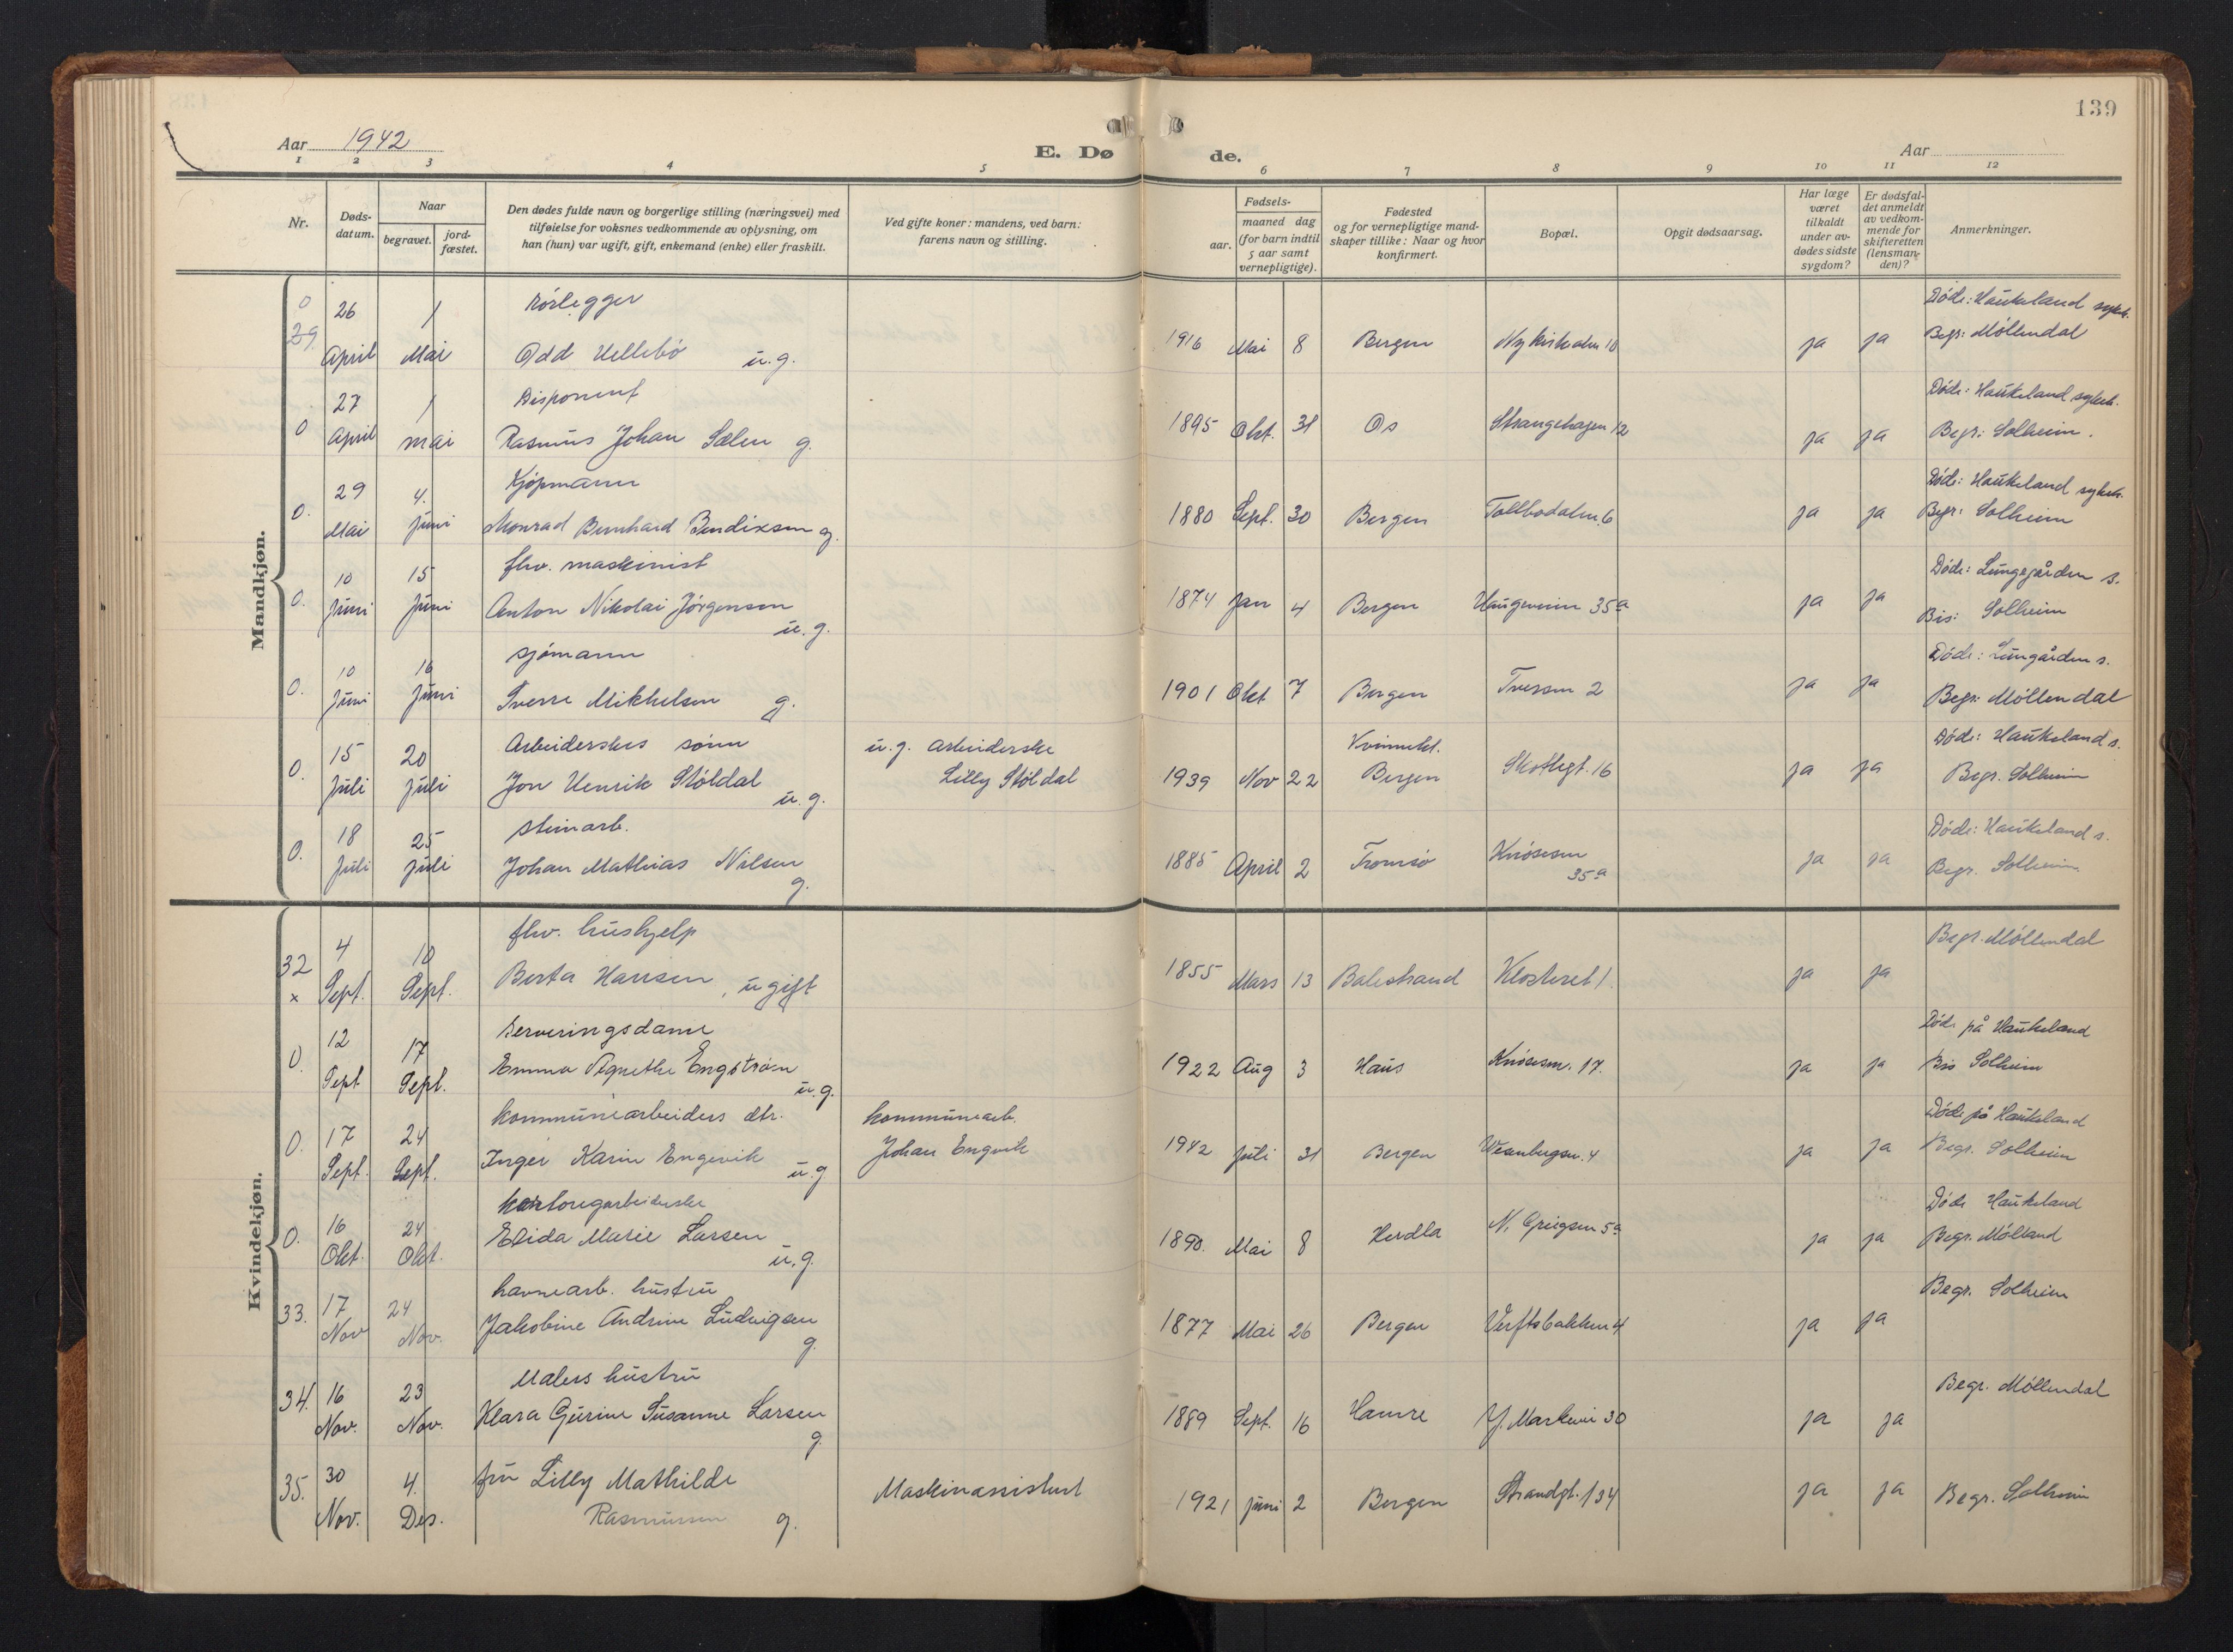 139
Aar 1942
E. Døde.
Aar
1 2 3 4 5 6 7 8 9 10 11 12
Nr.
Døds-
datum.
Naar
begravet.
jord-
fæstet.
Den dødes fulde navn og borgerlige stilling (næringsvei) med
tilføielse for voksnes vedkommende av oplysning, om
han (hun) var ugift, gift, enkemand (enke) eller fraskilt.
Ved gifte koner: mandens, ved barn:
farens navn og stilling.
Fødsels-
aar.
maaned dag
(for barn indtil
5 aar samt
vernepligtige).
Fødested
og for vernepligtige mand-
skaper tillike: Naar og hvor
konfirmert.
Bopæl.
Opgit dødsaarsag.
Har læge
været
tilkaldt
under av-
dødes sidste
sygdom?
Er dødsfal-
det anmeldt
av vedkom-
mende for
skifteretten
(lensman-
den)?
Anmerkninger.
Mandkjøn.
0 26 1 Rörlegger Döde: Haukeland sykeh.
29. April Mai Odd Hellebö u.g. 1916 Mai 8 Bergen Nykirkealm 10 ja ja Begr: Möllendal
27 1 Disponent Döde: Haukeland sykeh.
0 April mai Rasmus Johan Sælen g. 1895 Okt. 31 Os Strangehagen 12 ja ja Begr: Solheim.
29 4. Kjöpmann Döde: Haukeland sykeh.
0. Mai juni Monrad Bernhard Bendixsen g. 1880 Sept. 30 Bergen Tollbodalm. 6 ja ja Begr: Solheim
10 15 fhv. maskinist Döde: Lungegården s.
0. Juni Juni Anton Nikolai Jörgensen u.g. 1874 Jan 4 Bergen Haugeveien 35a ja ja Bis: Solheim
10 16 sjömann Döde: Lungården s.
0. Juni Juni Sverre Mikkelsen g. 1901 Okt 7 Bergen Tversm 2 ja ja Begr: Möllendal
15 20 Arbeiderskes sönn u.g. arbeiderske Kvinnekl. Döde: Haukeland s.
0. Juli Juli Jon Henrik Stöldal u.g. Lilly Stöldal 1939 Nov 22 Bergen Skottegt. 16 ja ja Begr. Solheim
18 25 steinarb. Döde: Haukeland s.
0. Juli Juli Johan Mathias Nilsen g. 1885 April 2 Tromsö Knösesm 35a ja ja Begr. Solheim
Kvindekjøn.
4 10 fhv. hushjelp Begr. Möllendal
32 x Sept. Sept. Berta Hansen, ugift 1855 Mars 13 Balestrand Klosteret 1. ja ja
12 17 Serveringsdame Döde på Haukeland
0. Sept Sept. Emma Agnethe Engström u.g. 1922 Aug 3 Haus Knösesm. 17. ja ja Bis Solheim
17 24 kommunearbeiders dtr. kommunearb. Döde på Haukeland
0. Sept. Sept. Inger Karin Engevik u.g Johan Engvik 1942 juli 31 Bergen Wesenbergsm. 4 ja ja Begr. Solheim
16 24 Döde Haukeland
0. Okt. Okt. Elida Marie Larsen u.g. 1890. Mai 8 Herdla N. Griegsm 5a ja ja Begr. Mölland
17 24 havnearb. hustru Begr. Solheim
33. Nov Nov. Jakobine Andrine Ludvigsen g. 1877 Mai 26 Bergen Verftsbakken 4 ja ja
16 23 Malers hustru Begr. Möllendal
34. Nov. Nov. Klara Gurine Susanne Larsen g. 1889 Sept. 16 Hamre Y. Markevei 30 ja ja
30 4. fru Lilly Mathilde Maskinassistent
35. Nov. Des. Rasmussen g. 1921 juni 2 Bergen Strandgt. 134 ja ja Begr. Solheim